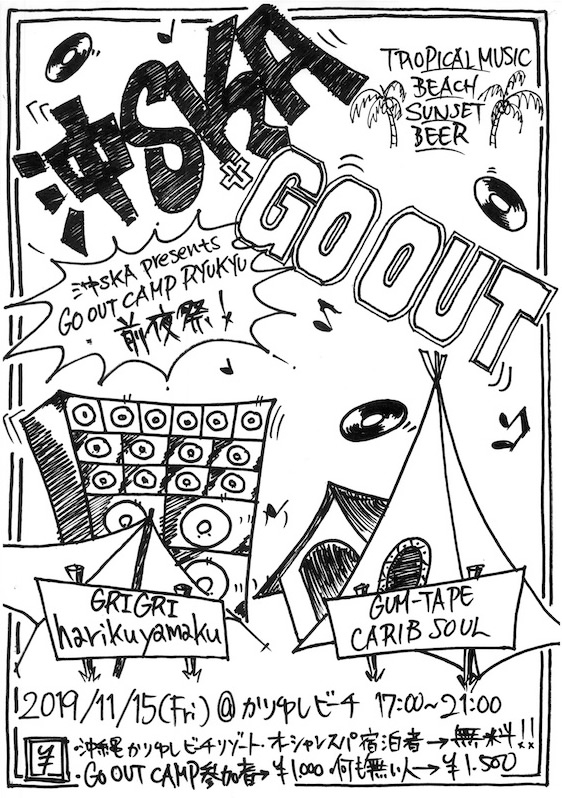 沖SKA
+
GO OUT
TROPICAL MUSIC
BEACH
SUNSET
BEER
沖SKA presents
GO OUT CAMP RYUKYU
前夜祭!
GRIGRI
harikuyamaku
GUM-TAPE
CARIB SOUL
2019/11/15(Fri) @ かりゆしビーチ 17:00~21:00
¥
・沖縄かりゆしビーチリゾート・オーシャンスパ宿泊者→無料!!
・GO OUT CAMP参加者→¥1,000 何も無い人→¥1,500